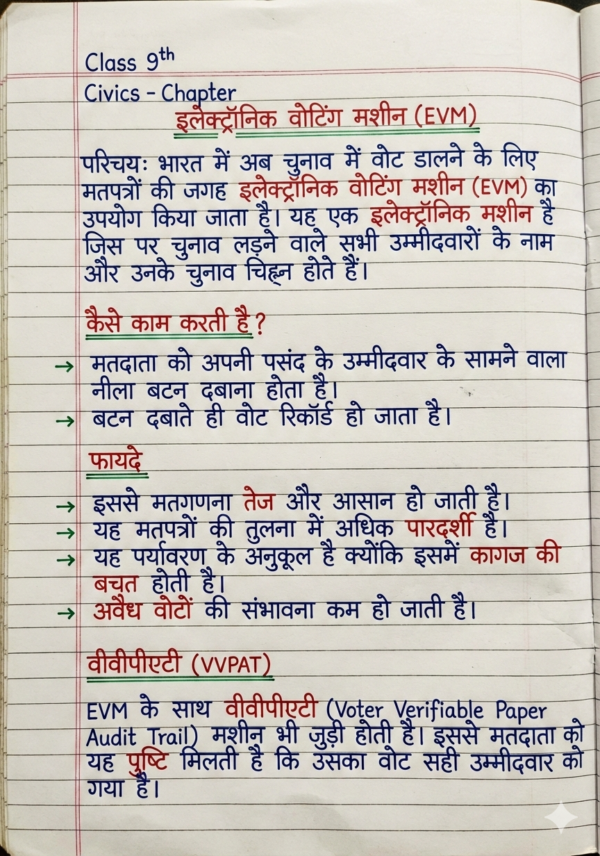 Class 9th
Civics - Chapter
इलेक्ट्रॉनिक वोटिंग मशीन (EVM)
परिचयः भारत में अब चुनाव में वोट डालने के लिए
मतपत्रों की जगह इलेक्ट्रॉनिक वोटिंग मशीन (EVM) का
उपयोग किया जाता है। यह एक इलेक्ट्रॉनिक मशीन है
जिस पर चुनाव लड़ने वाले सभी उम्मीदवारों के नाम
और उनके चुनाव चिह्न होते हैं।
कैसे काम करती है?
→ मतदाता को अपनी पसंद के उम्मीदवार के सामने वाला
नीला बटन दबाना होता है।
→ बटन दबाते ही वोट रिकॉर्ड हो जाता है।
फायदे
→ इससे मतगणना तेज और आसान हो जाती है।
→ यह मतपत्रों की तुलना में अधिक पारदर्शी है।
→ यह पर्यावरण के अनुकूल है क्योंकि इसमें कागज की
बचत होती है।
→ अवैध वोटों की संभावना कम हो जाती है।
वीवीपीएटी (VVPAT)
EVM के साथ वीवीपीएटी (Voter Verifiable Paper
Audit Trail) मशीन भी जुड़ी होती है। इससे मतदाता को
यह पुष्टि मिलती है कि उसका वोट सही उम्मीदवार को
गया है।